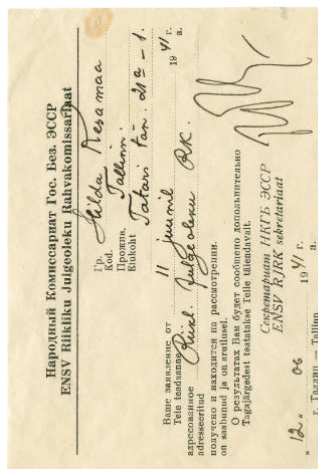 Народный Комиссариат Гос. Без. ЭССР
ENSV Riikliku Julgeoleku Rahvakomissariaat
Гр.
Kod. Hilda Resamaa
Прожив. Tallinn
Elukoht Tatari tän. 21a – 1.
Ваше заявление от 11 juunil 1941 г.
Teie teadaanne a.
адресованное Riikl. Julgeoleku RK.
adresseeritud
получено и находится на рассмотрении.
on saabunud ja on arutlusel.
О результатах Вам будет сообщено дополнительно
Tagajärgedest teatatakse Teile täiendavalt.
Секретариат НКГБ ЭССР
ENSV RJRK sekretariaat
"12" 06 1941 г.
a.
г. Таллин — Tallinn